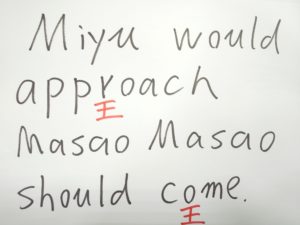 Miyu would
approach
王
Masao Masao
should come.
王